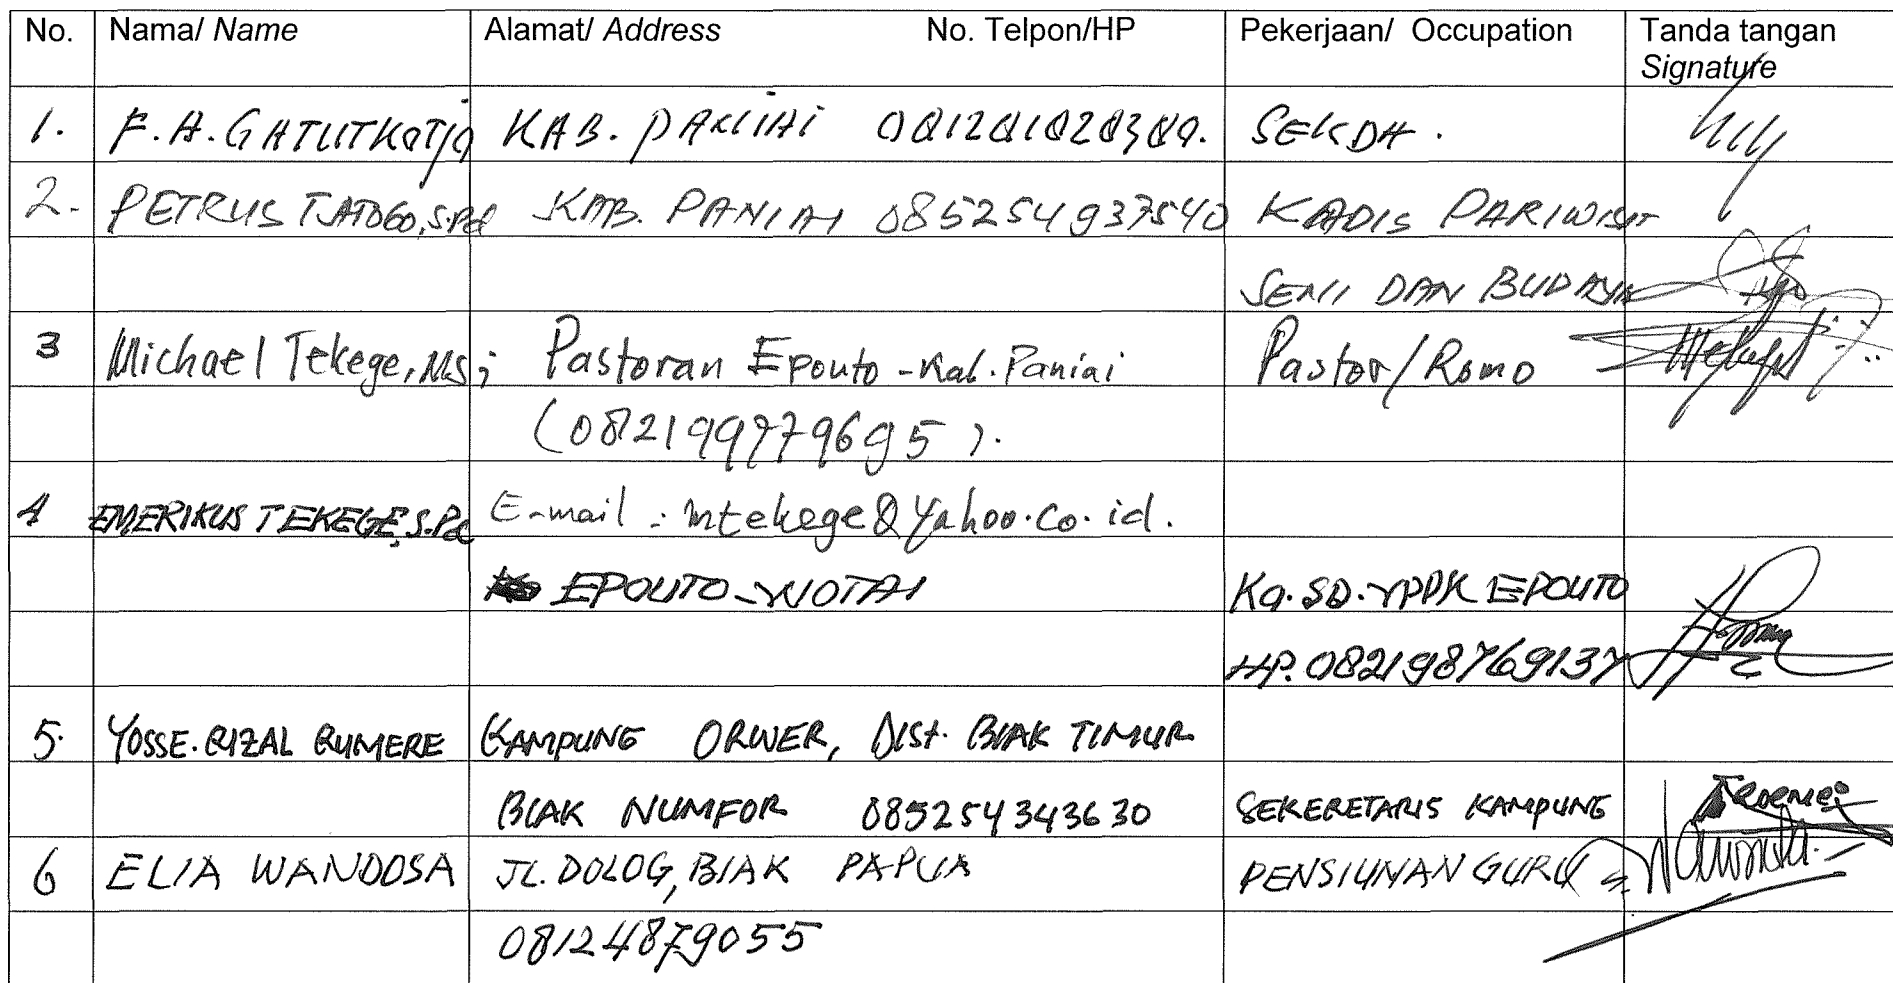 No. Nama/ Name Alamat/ Address No. Telpon/HP Pekerjaan/ Occupation Tanda tangan
Signature
1. F.A. GATUTKOTJO KAB. PANIAI SEKDA.
2. PETRUS TATOGO, S.Pd KAB. PANIAI 085254937540 KADIS PARIWISAT
SENI DAN BUDAYA
3 Michael Tekege, Ms; Pastoran Epouto - Kab. Paniai Pastor/Romo
(082199979695).
4 EMERIKUS TEKEGE, S.Pd E-mail : mtekege@yahoo.co.id.
EPOUTO - YUOTAI Ka. SD. YPPK EPOUTO
HP. 082198769137
5. YOSSE. RIZAL RUMERE KAMPUNG ORWER, DIST. BIAK TIMUR
BIAK NUMFOR 085254343630 SEKERETARIS KAMPUNG
6 ELIA WANDOSA JL. DOLOG, BIAK PAPUA PENSIUNAN GURU
08124879055